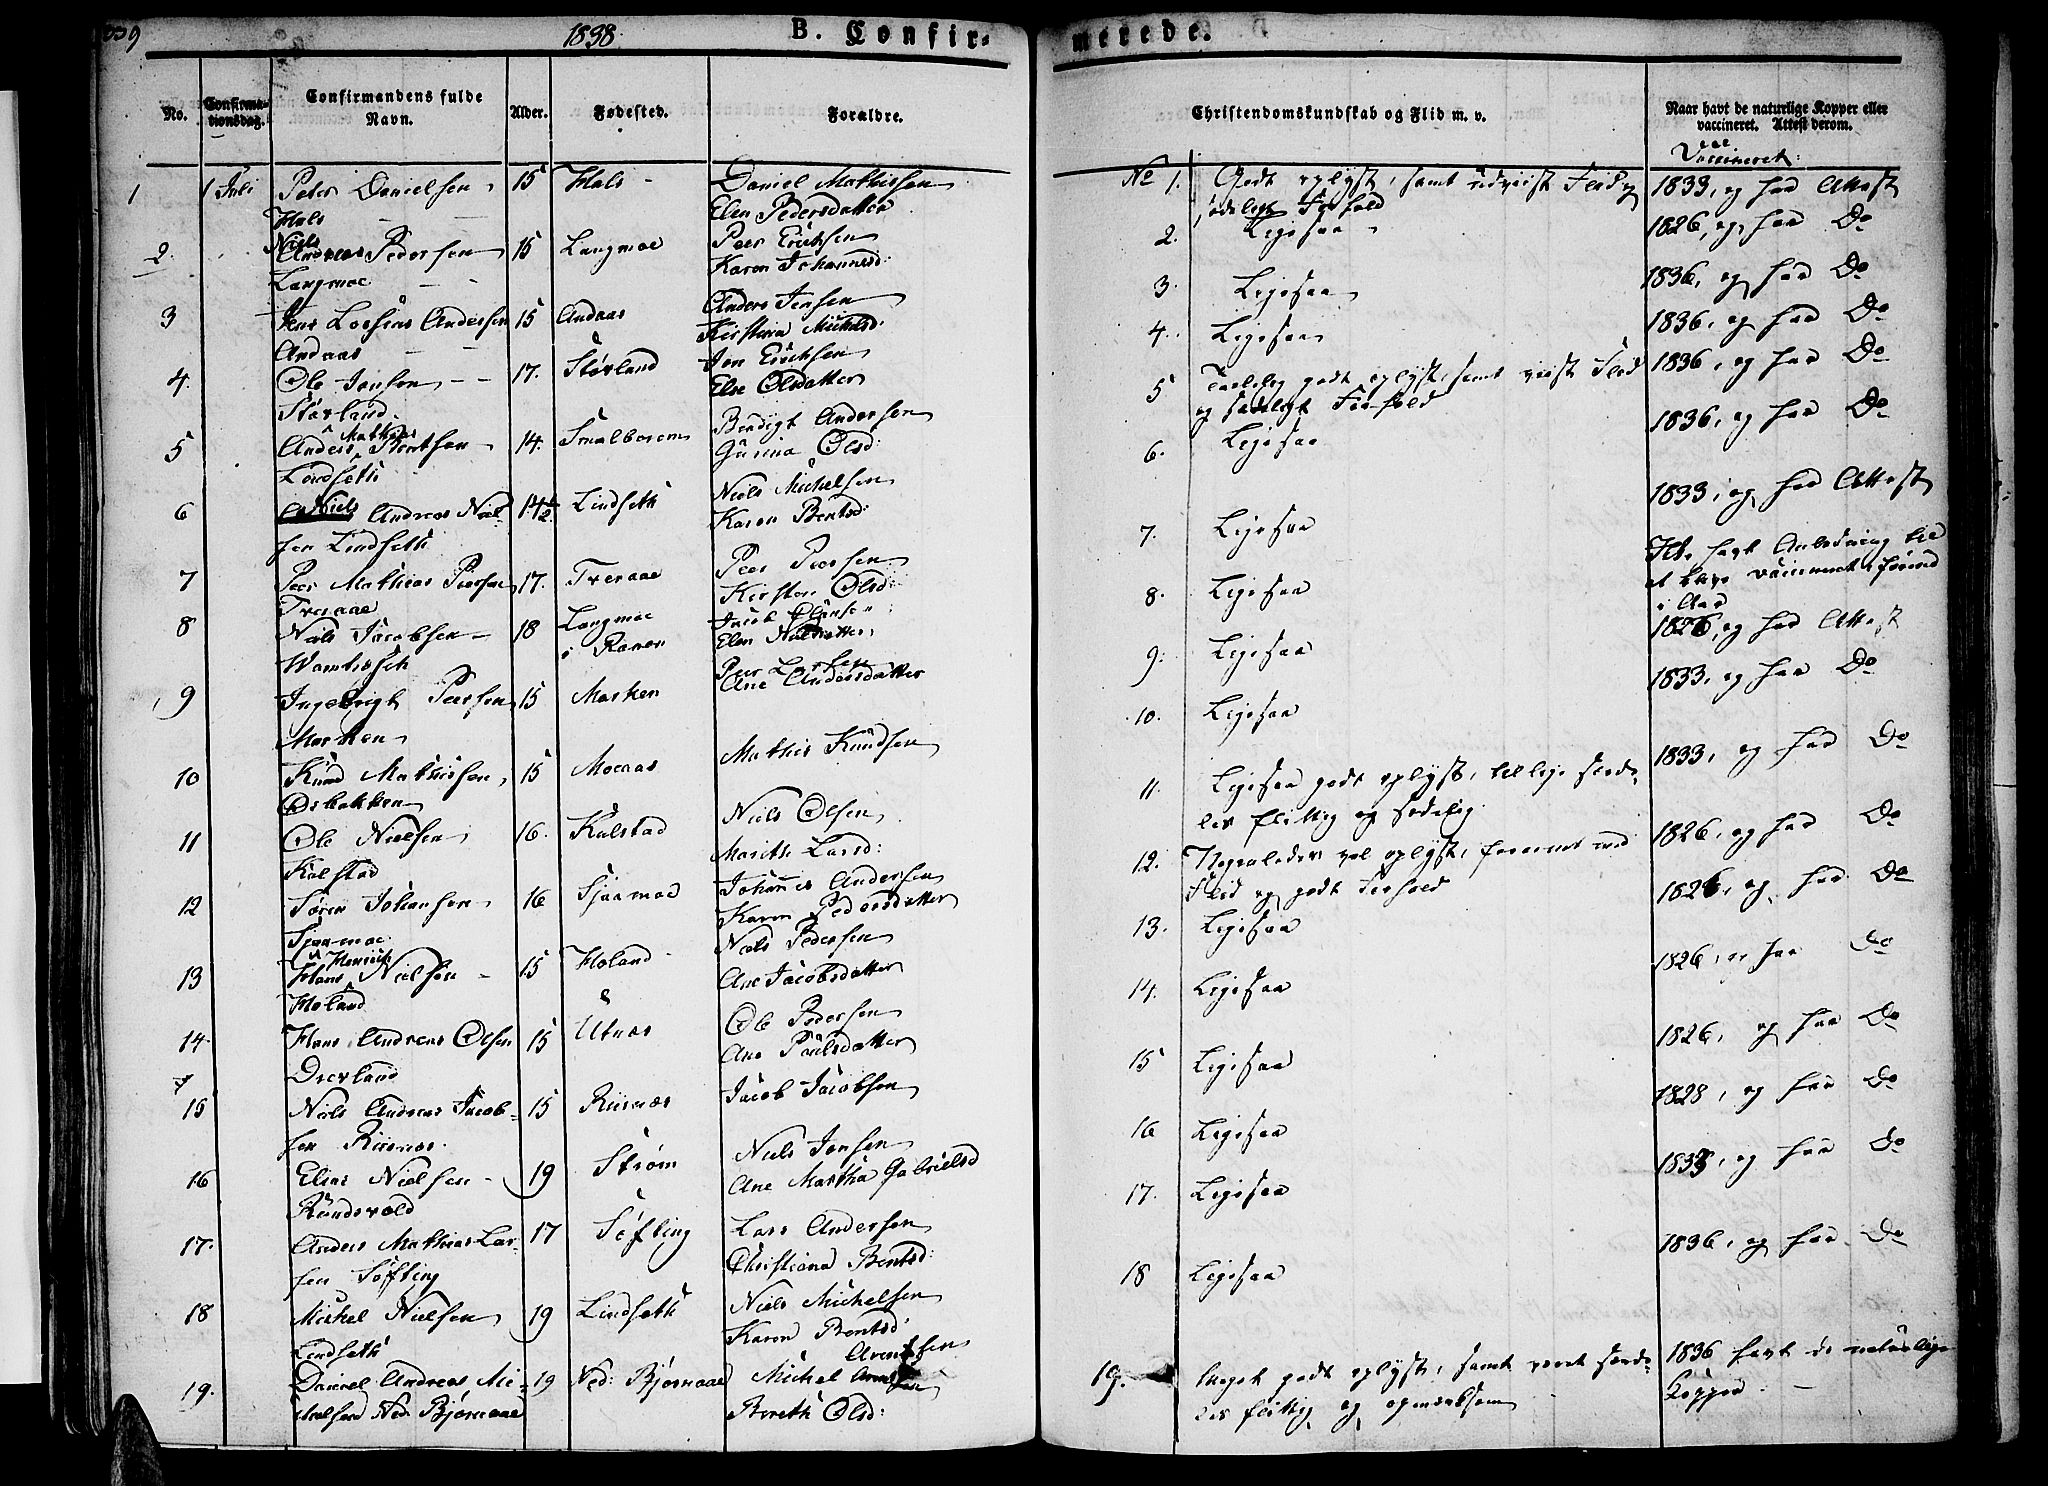 1838. B. Confirmerede.
No. Confirmationsdag. Confirmandens fulde Navn. Alder. Fødested. Forældre. Christendomskundskab og Flid m. v. Naar havt de naturlige Kopper eller vaccineret. Attest derom.
Vaccineret:
1 1 Juli Peter Danielsen 15 Hals Daniel Mathissen
Hals Elen Pedersdatter
2. Niels Andreas Pedersen 15 Langmoe Peer Erichsen
Langmoe Karen Johannesd:
3 Jens Andersen 15 Andaas Anders Jensen
Andaas Kirstena Michelsd:
4. Ole Jensen 17. Størland Jen Erichsen
Størland Else Olsdatter
5 Anders Mathias Bentsen 14. Smalbosen Bendigt Andersen
Lindseth Gurina Olsd:
6 Niels Andreas Niel- 14½ Lindseth Niels Michelsen
sen Lindseth Karen Bentsd:
7 Peer Mathias Peersen 17. Tveraae Peer Peersen
Tveraae Kirsten Olsd:
8 Niels Jacobsen 18 Langmoe i Ranen Jacob
Elen Nielsdatter
9 Ingebrigt Peersen 15 Marken Peer Larsen
Marken Ane Andersdatter
10 Knud Mathissen 15 Moeaas Mathis Knudsen
11 Ole Nielsen 16. Kulstad Niels Olsen
Kulstad Marith Larsd:
12 Søren Johansen 16 Sjaamoe Johannes Andersen
Sjaamoe Karen Pedersdatter
13 Hans Henrich Nielsen 15 Holand Niels Pedersen
Holand Ane Jacobsdatter
14. Hans Andreas Olsen 15 Utnæs Ole Pedersen
Drevland Ane Paulsdatter
15 Niels Andreas Jacob- 15 Riisnæs Jacob Jacobsen
sen Riisnæs
16 Elias Nielsen 19 Strøm Niels Jensen
Ane Martha Gabrielsd
17. Anders Mathias Lar- 17 Søfting Lars Andersen
sen Søfting Christiana Bentsd:
18 Michel Nielsen 19 Lindseth Niels Michelsen
Lindseth Karen Bentsd:
19. Daniel Andreas Mi- 19 Ned: Bjørnaae Michel Arentsen
chelsen Ned: Bjørnaae Bereth Olsd:
No 1. Godt oplyst, samt udviist Flid og 1833, og har Attest
sædeligt Forhold
2. Ligesaa 1826, og har Do
3. Ligesaa 1836, og har Do
4. Ligesaa 1836, og har Do
5 godt oplyst, samt viist Flid 1836, og har Do
og sædeligt Forhold
6. Ligesaa 1836, og har Do
7. Ligesaa 1833, og har Attest
8. Ligesaa Ikke havt Anledning til
at blive vaccineret
9. Ligesaa 1826, og har Attest
10. Ligesaa 1833, og har Do
11. Ligesaa godt oplyst, tillige særde- 1833, og har Do
les flittig og sædelig
12. vel oplyst, foreenet med 1826, og har Do
Flid og godt Forhold
13. Ligesaa 1826, og har Do
14. Ligesaa 1826, og har Do
15 Ligesaa 1826, og har Do
16 Ligesaa 1828, og har Do
17. Ligesaa og har Do
18 Ligesaa 1836, og har Do
19. Meget godt oplyst, samt været særde- 1836 havt de naturlige
les flittig og opmærksom Kopper